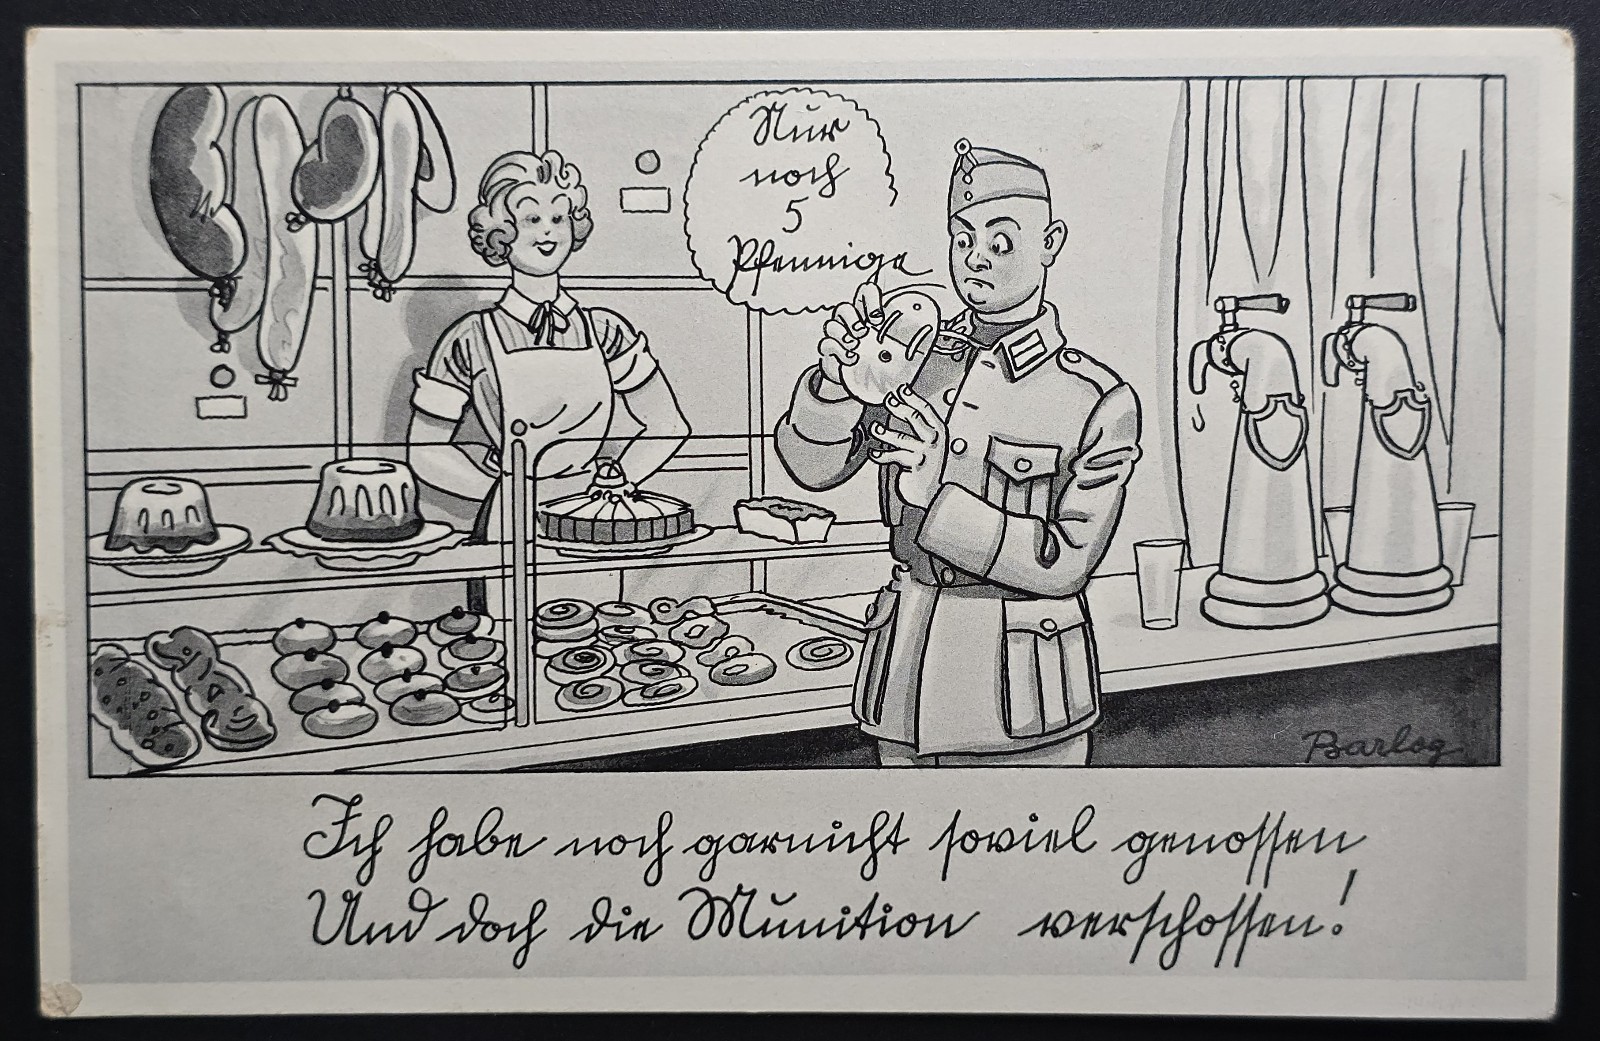 Nur
noch
5
Pfennige
Barlog
Ich habe noch garnicht soviel genossen
Und doch die Munition verschossen!